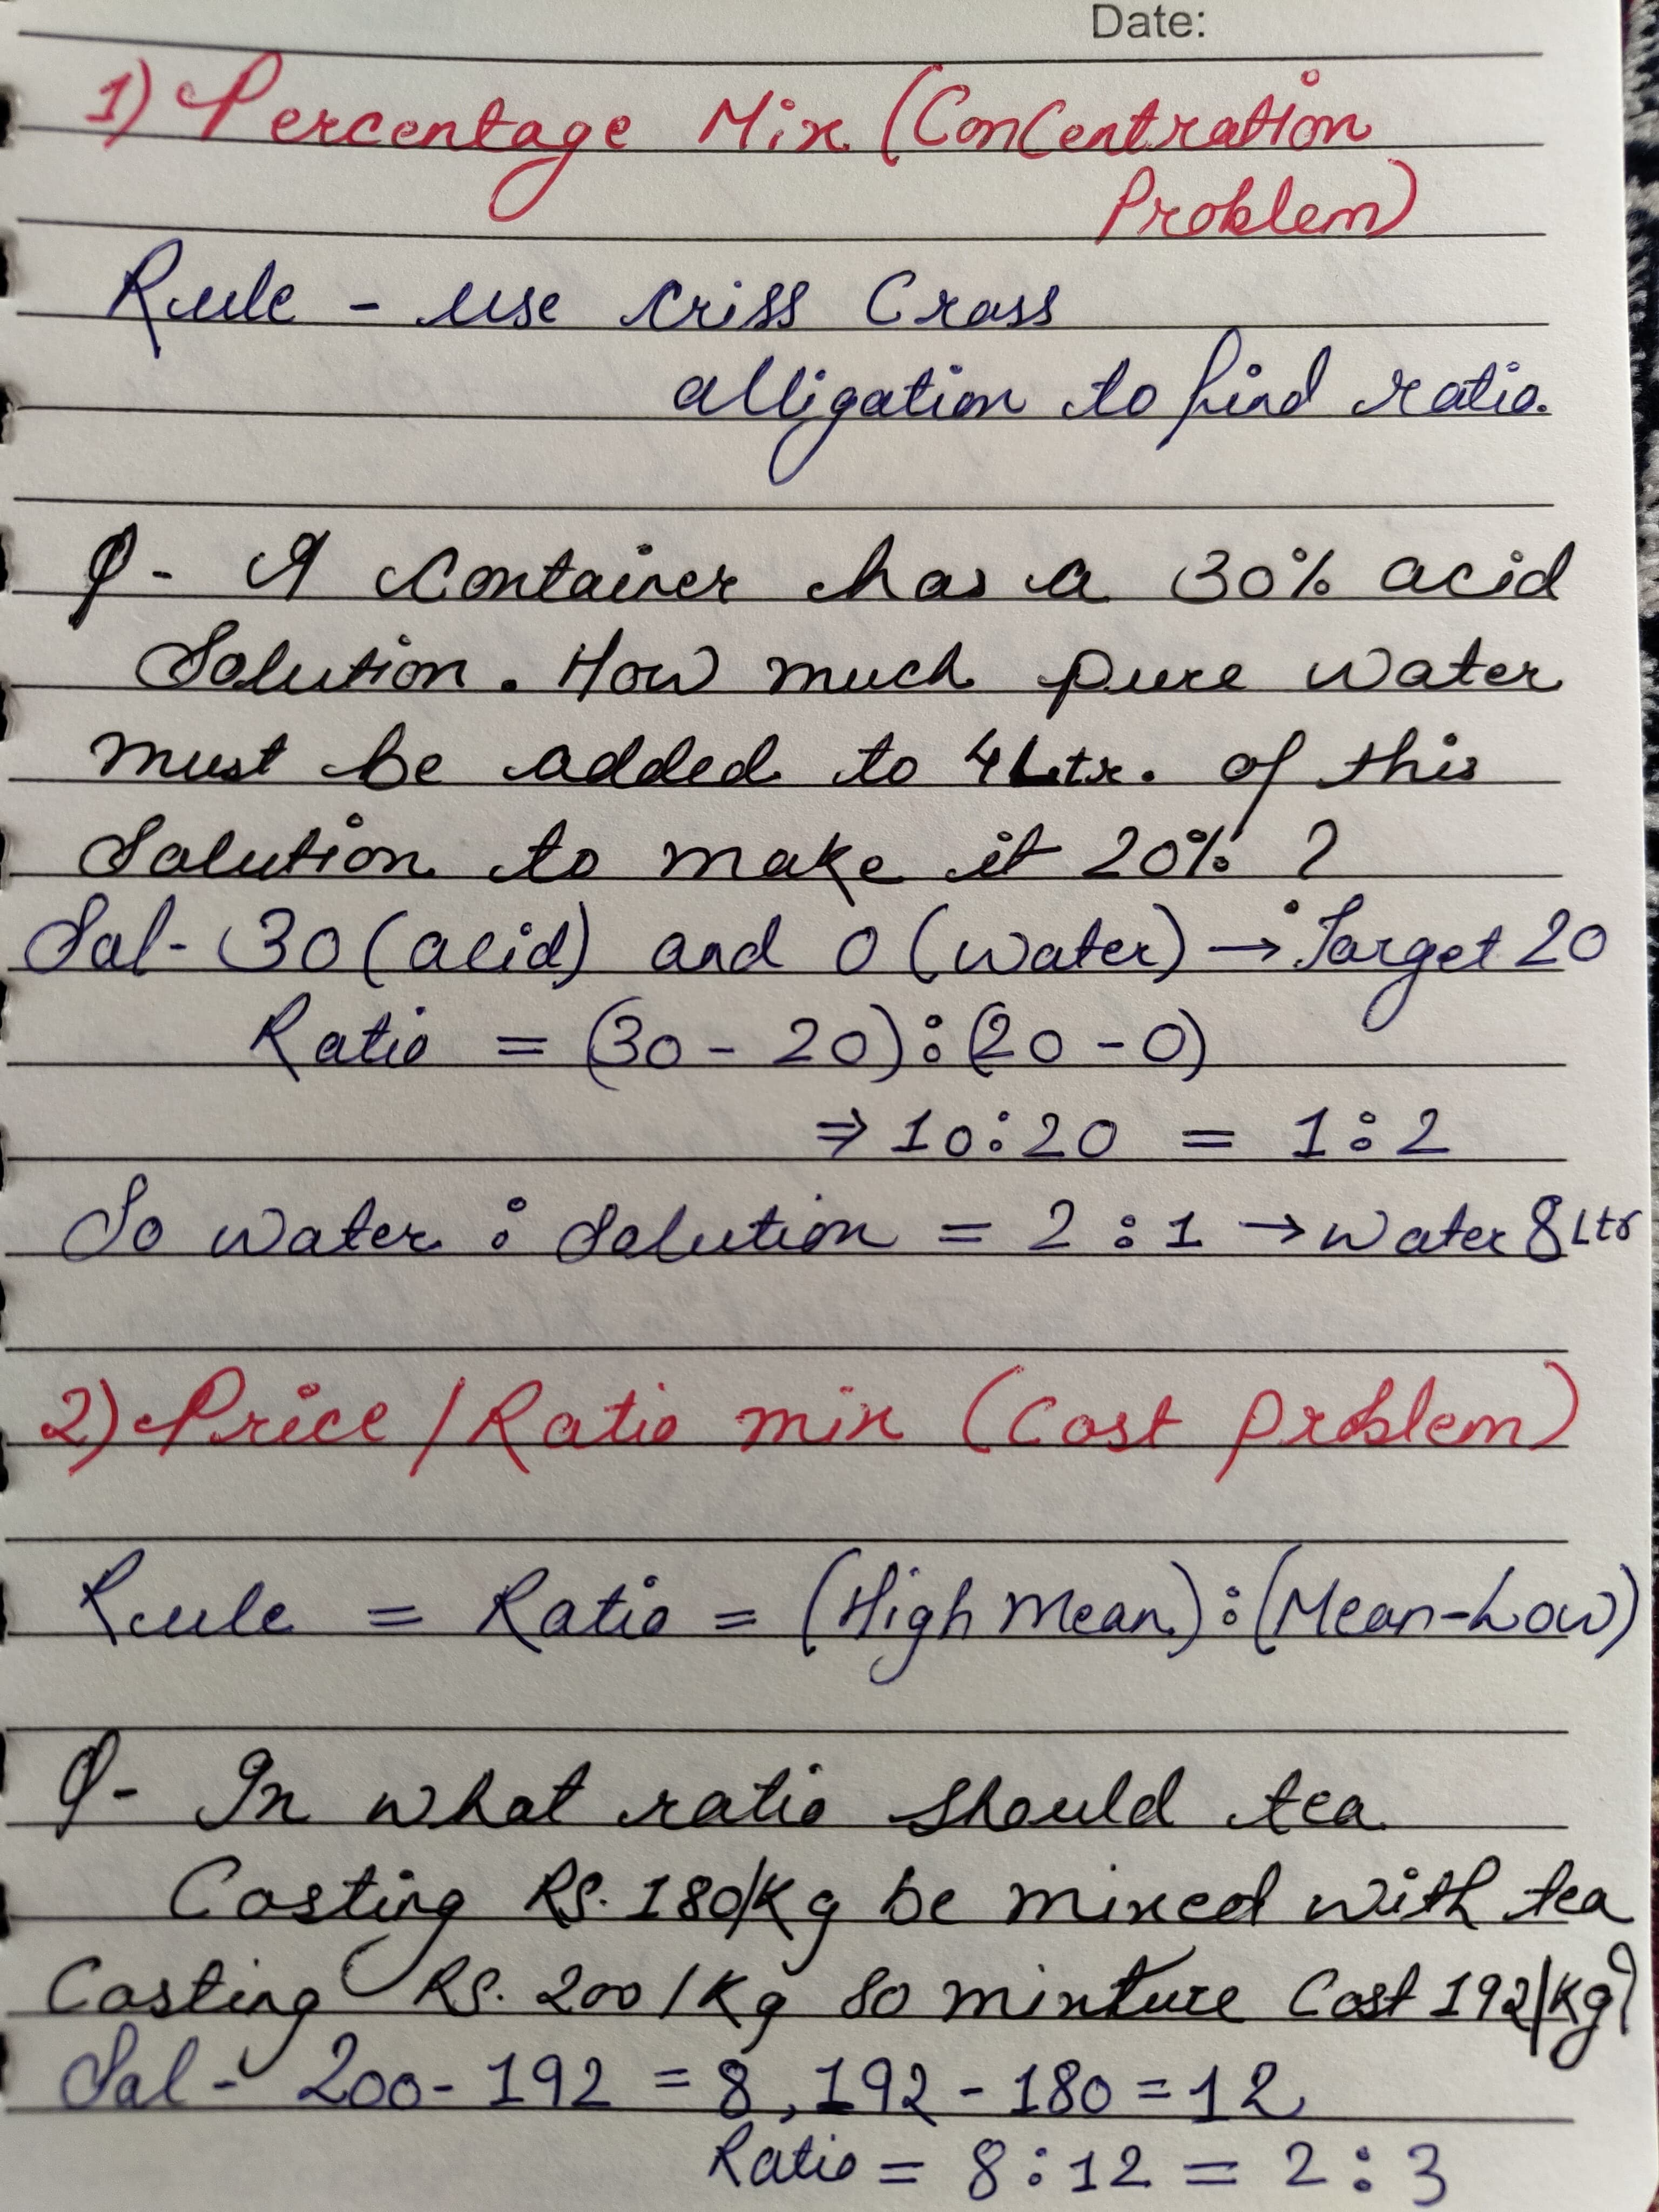 Date:
1) Percentage Mix (Concentration
Problem)
Rule - use criss Cross
alligation to find ratio.
Q- A Container has a 30% acid
Solution. How much pure water
must be added to 4 Ltr. of this
Solution to make it 20% ?
Sol- 30 (acid) and 0 (water) → Target 20
Ratio = (30 - 20) : (20 - 0)
⇒ 10:20 = 1:2
So water : Solution = 2 : 1 → water 8 Ltr
2) Price / Ratio mix (Cost problem)
Rule = Ratio = (High Mean) : (Mean-Low)
Q- In what ratio should tea
Costing RS. 180/Kg be mixed with tea
Costing RS. 200/Kg so mixture Cost 192/Kg?
Sol- 200-192 = 8, 192 - 180 = 12
Ratio = 8 : 12 = 2 : 3